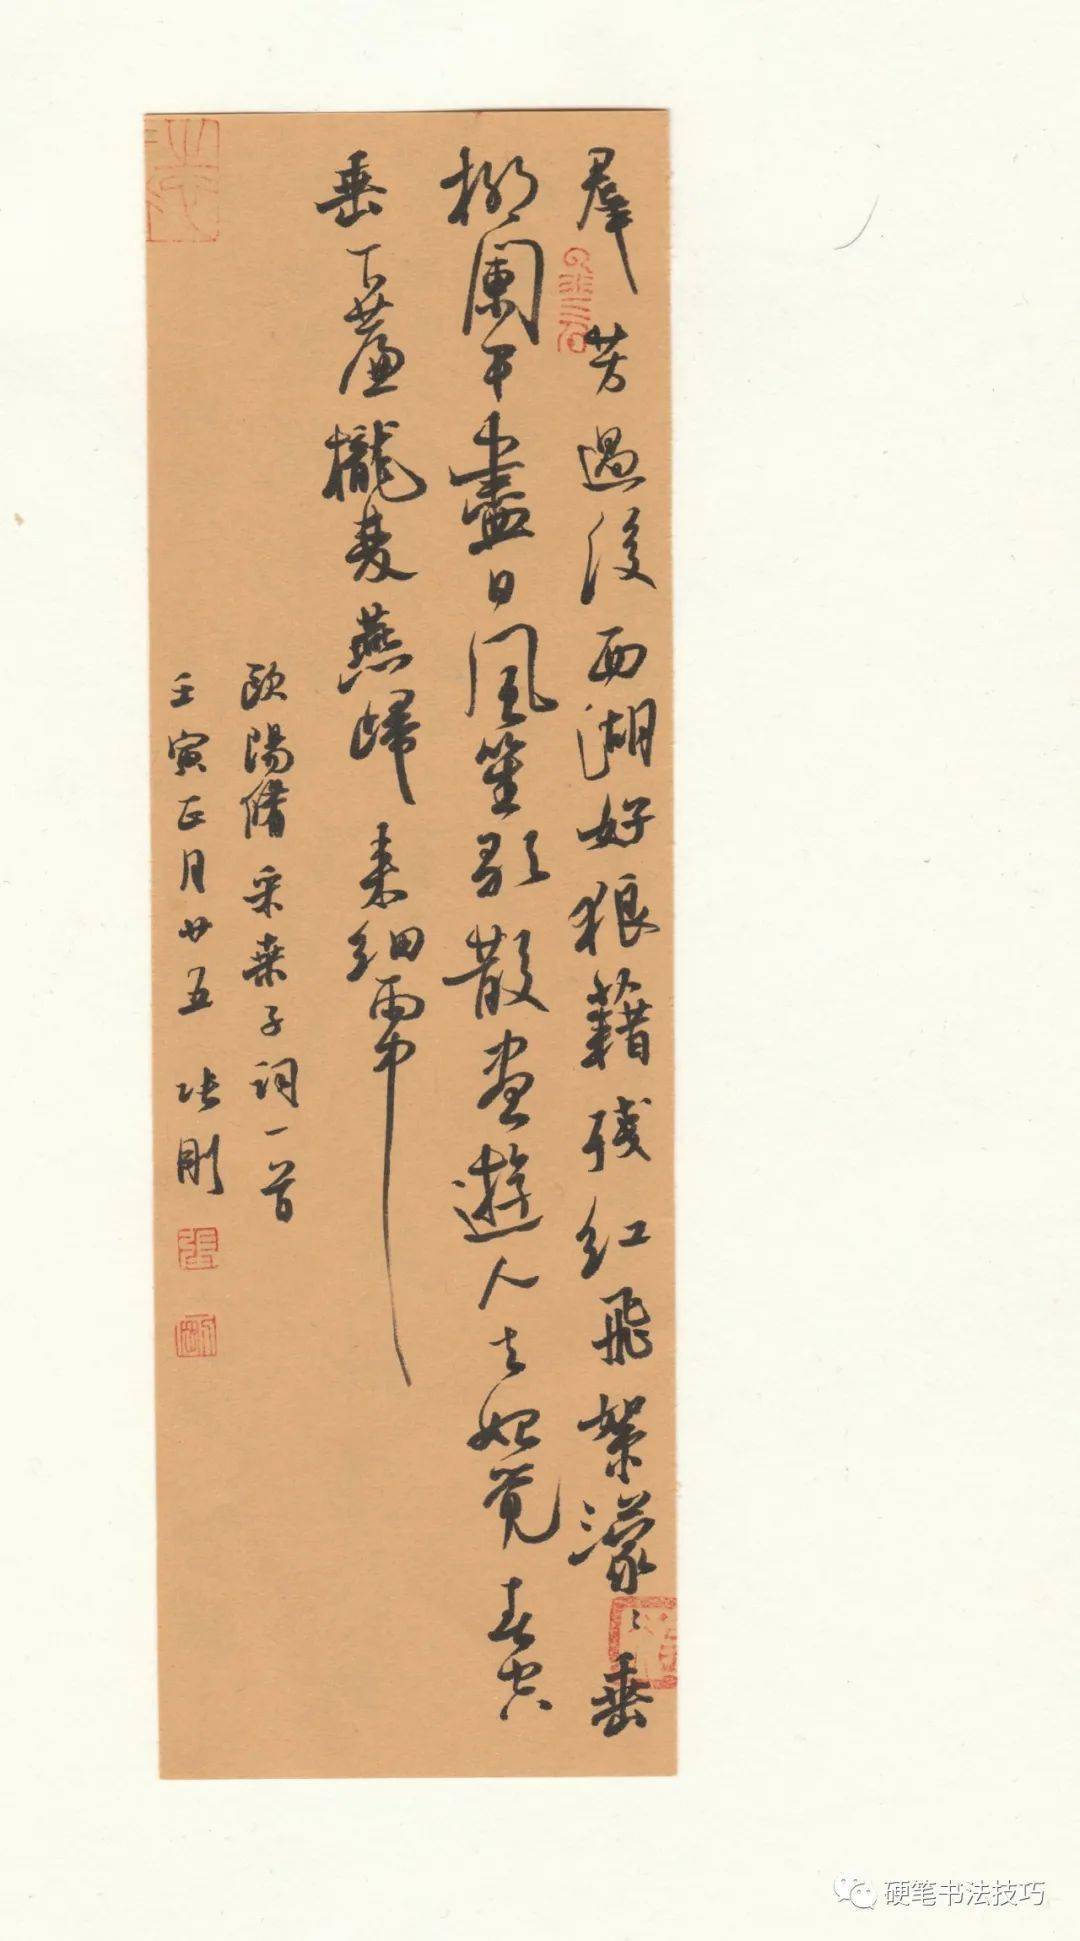 羣芳過後西湖好狼藉残红飛絮濛〻垂
柳闌干盡日風笙歌散盡遊人去始覺春空
垂下簾櫳雙燕歸来细雨中
歐陽脩采桑子词一首
壬寅正月廿五 张剛
硬笔书法技巧